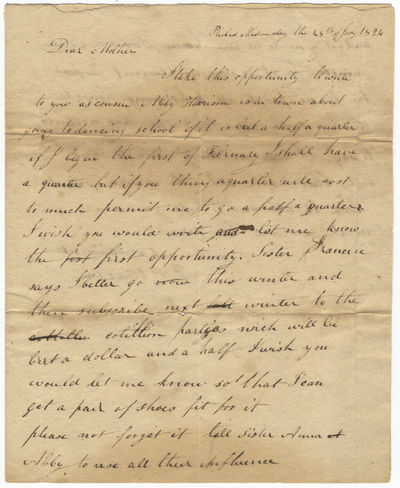 Wednesday the 28th of Jany 1824
Dear Mother
I take this opportunity to write
to you as cousin Abby Harrison is in town about
going to dancing school if it is but a half a quarter
if I begin the first of February I shall have
a quarter but if you thing a quarter will cost
to much permit me to go a half a quarter
I wish you would write and let me know
the first first opportunity. Sister Francis
says I better go now this winter and
then subscribe next winter to the
cotillion partys wich will be
but a dollar and a half I wish you
would let me know so that I can
get a pair of shoes fit for it
please not forget it tell Sister Anna
Abby to use all their influence